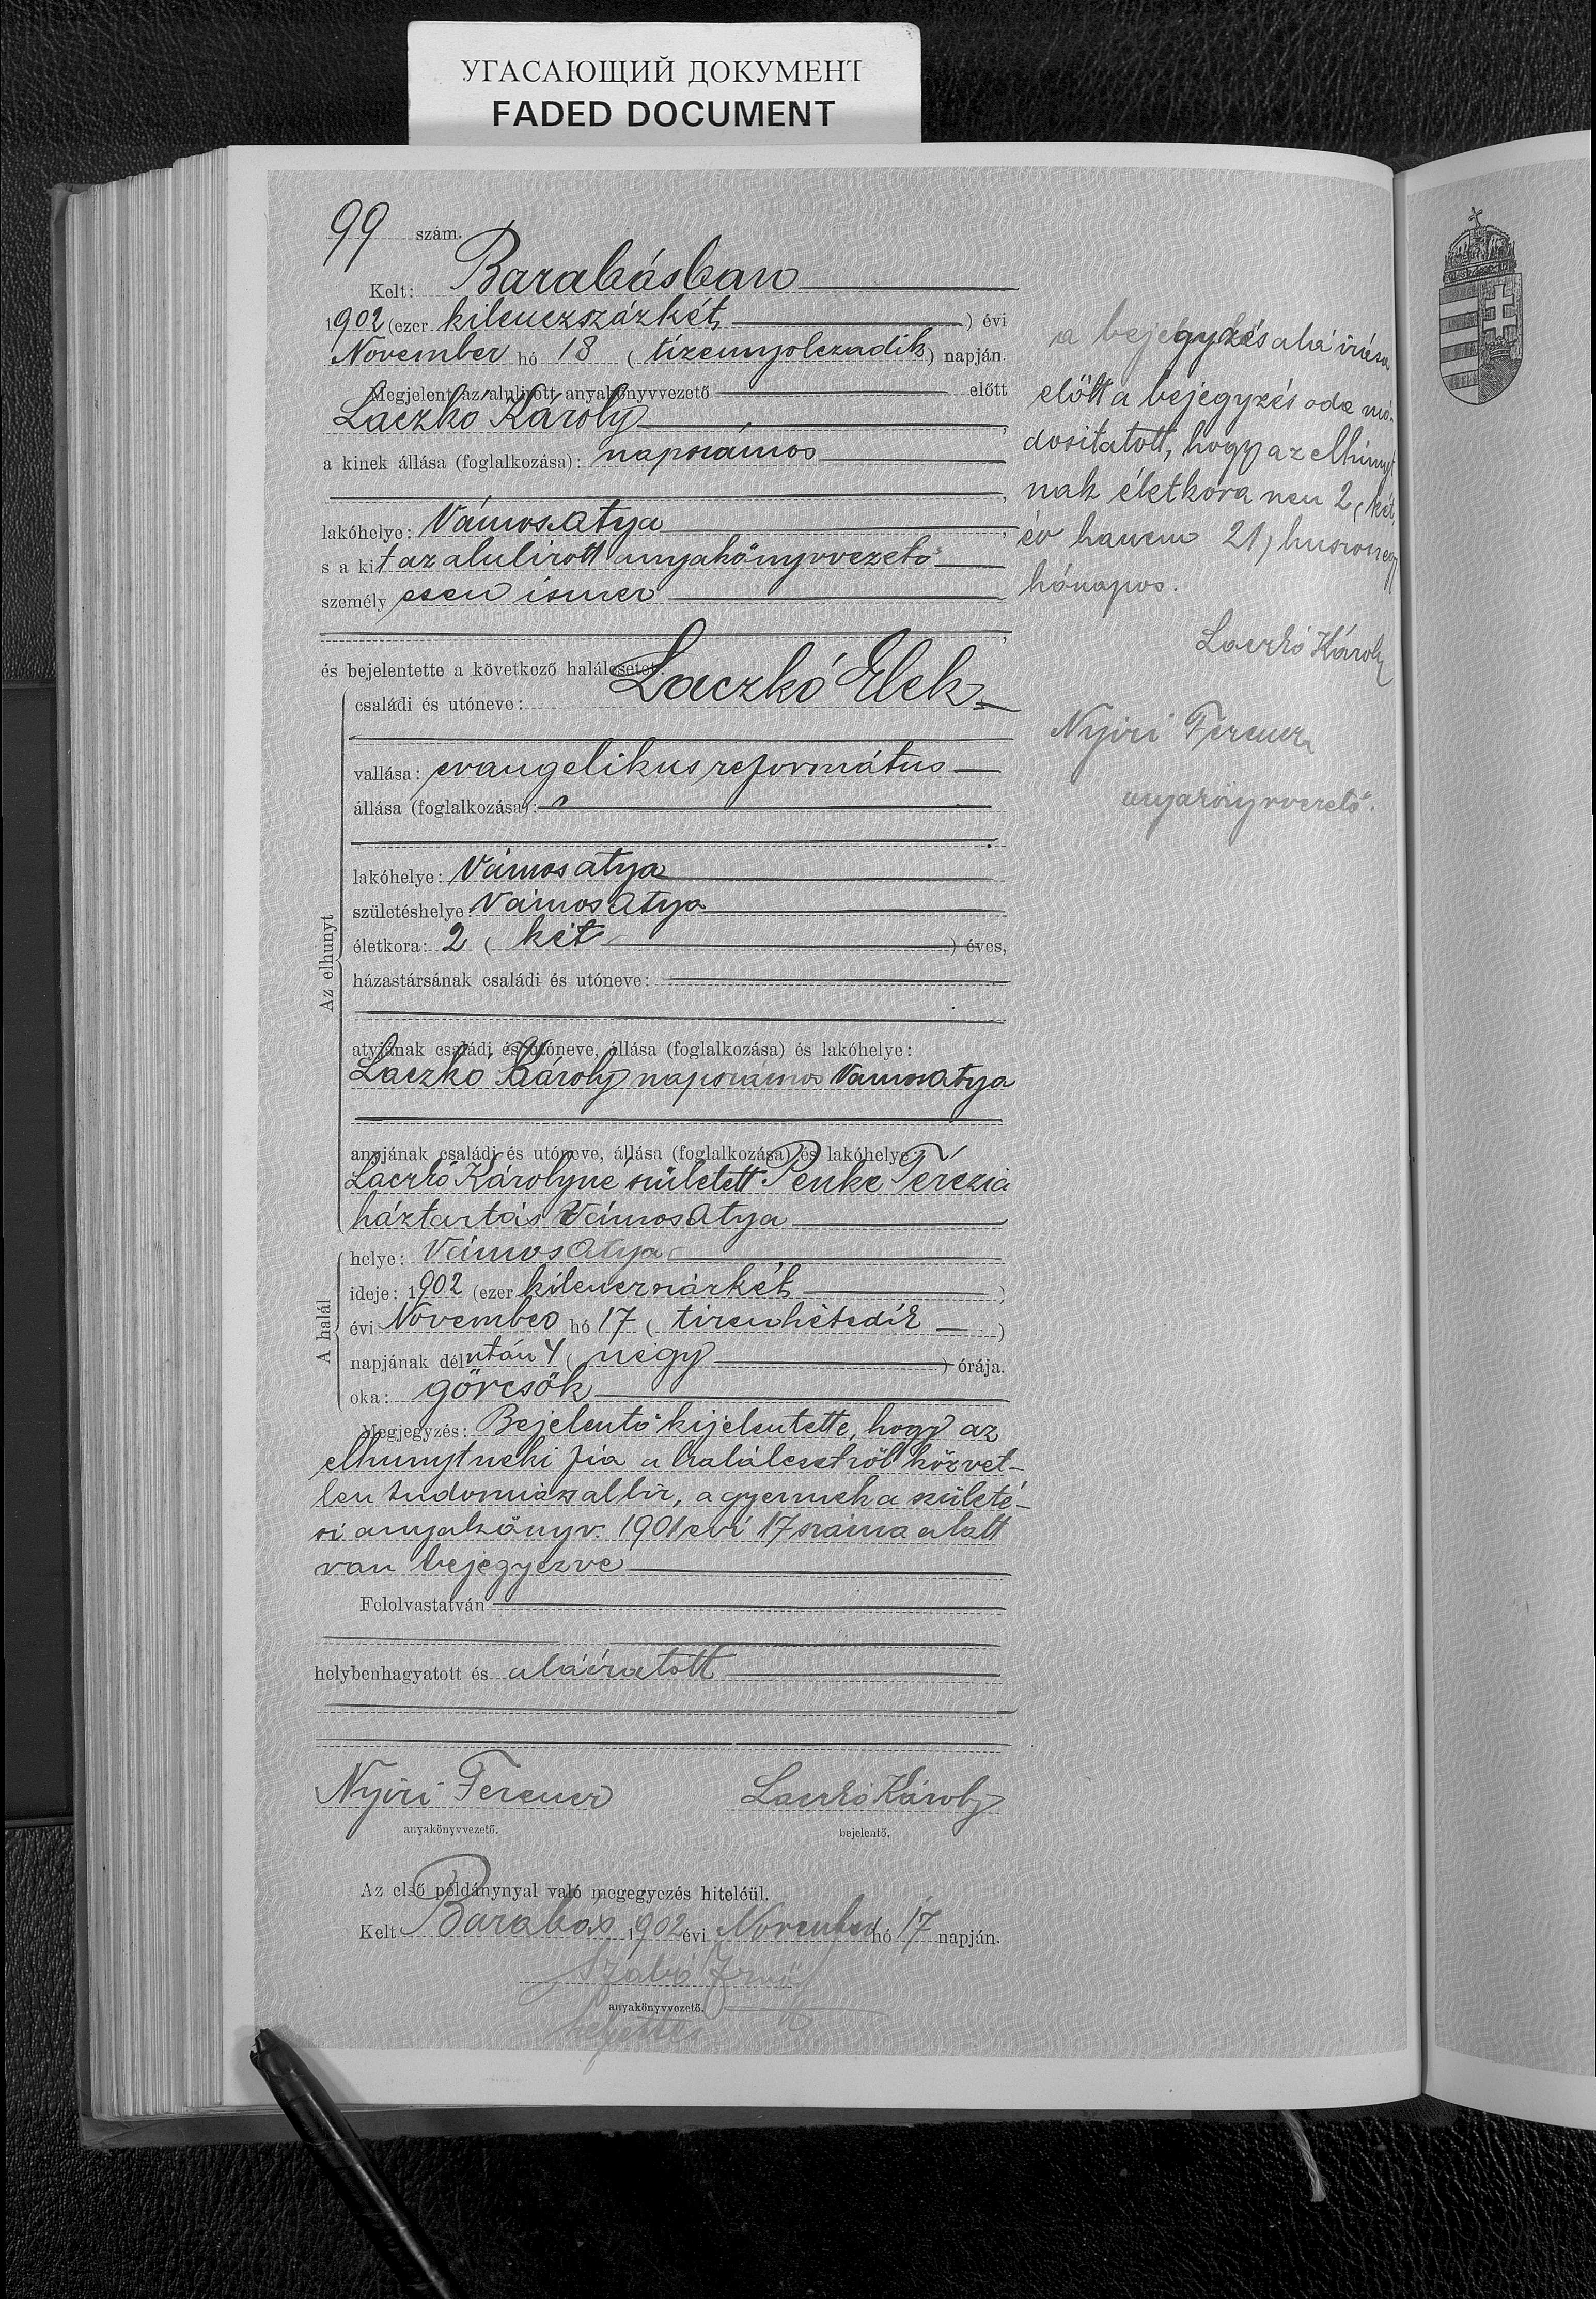 УГАСАЮЩИЙ ДОКУМЕНТ
FADED DOCUMENT
99 szám.
Kelt: Barabásban
1902 (ezer kilenczszázkét) évi
November hó 18 (tizennyolczadik) napján.
Megjelent az alulirott anyakönyvvezető előtt
Laczkó Károly,
a kinek állása (foglalkozása): napszámos
lakóhelye: Vámosatya
s a kit az alulirott anyakönyvvezető
személyesen ismer
és bejelentette a következő halálesetet:
Az elhunyt
családi és utóneve: Laczkó Elek
vallása: evangelikus református
állása (foglalkozása):
lakóhelye: Vámosatya
születéshelye: Vámosatya
életkora: 2 (két) éves,
házastársának családi és utóneve:
atyjának családi és utóneve, állása (foglalkozása) és lakóhelye:
Laczkó Károly napszámos Vámosatya
anyjának családi és utóneve, állása (foglalkozása) és lakóhelye:
Laczkó Károlyné született Penke Terézia
háztartás Vámosatya
A halál
helye: Vámosatya
ideje: 1902 (ezer kilenczszázkét)
évi November hó 17 (tizenhetedik)
napjának délután 4 (négy) órája.
oka: görcsök
Megjegyzés: Bejelentő kijelentette, hogy az
elhunyt neki fia a halálesetről közvet-
len tudomással bir, a gyermek a születé-
si anyakönyv 1901 évi 17 száma alatt
van bejegyezve
Felolvastatván
helybenhagyatott és aláiratott
Nyiri Ferencz Laczkó Károly
anyakönyvvezető. bejelentő.
Az első példánynyal való megegyezés hiteléül.
Kelt Barabás 1902 évi November hó 17 napján.
Szabó Jenő
anyakönyvvezető.
helyettes
a bejegyzés aláirása
előtt a bejegyzés oda mó-
dositatott, hogy az elhunyt
nak életkora nem 2, két,
év hanem 21, huszonegy
hónapos.
Laczkó Károly
Nyiri Ferencz
anyakönyvvezető.